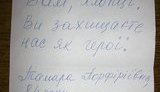 Вам, хлопці!
Ви захищаєте
нас як герої!
Тамара Порфирівна